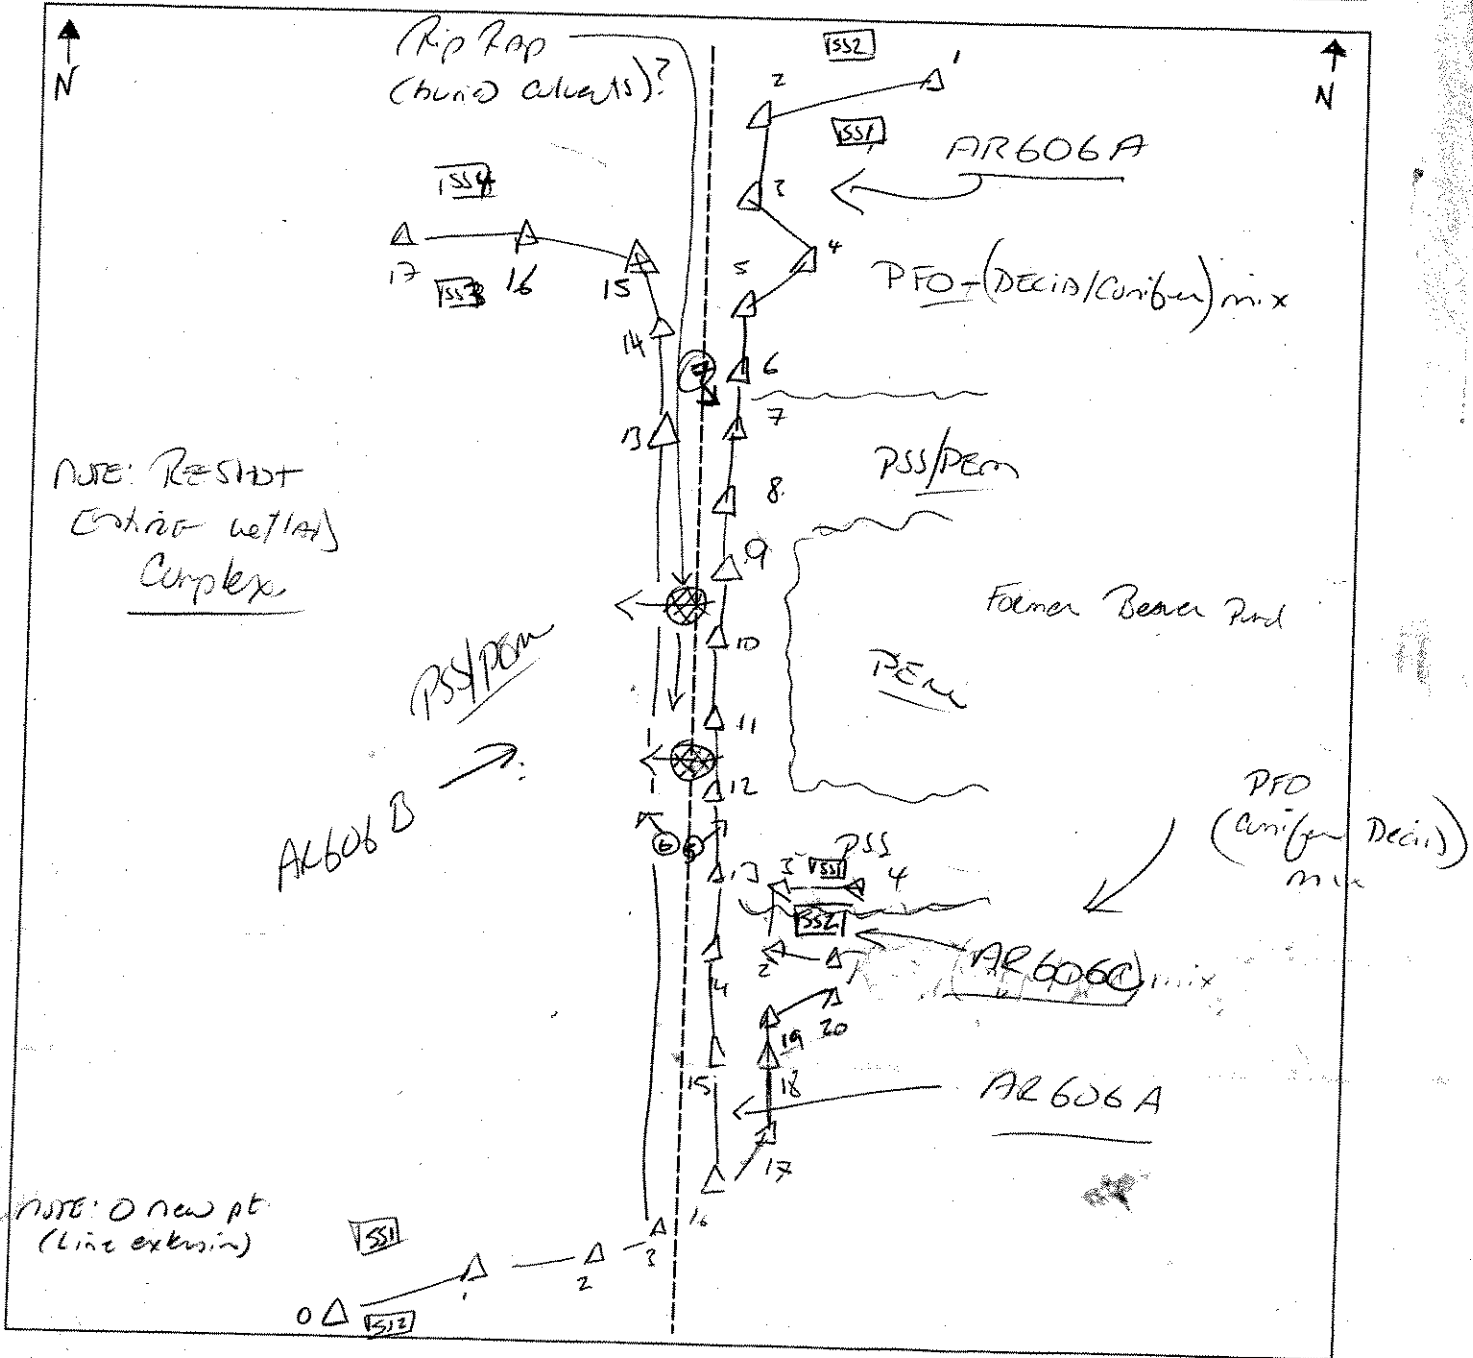 N
N
Rip Rap
(buried culverts)?
SS2
1
2
SS1
AR606A
3
SS4
4
17
16
15
SS3
5
PFO-(DECID/Conifer) mix
14
6
7
7
13
PSS/PEM
8
NOTE:
Entire wetland
Complex
9
Former Beaver Pond
10
PSS/PEM
PEM
11
12
AR606B
PFO
(Conifer Decid)
mix
6
5
PSS
13
3
SS1
4
SS2
2
1
AR606C
mix
14
19
20
15
18
AR606A
17
16
NOTE: 0 new pt.
(Line extension)
SS1
3
2
1
0
SS2